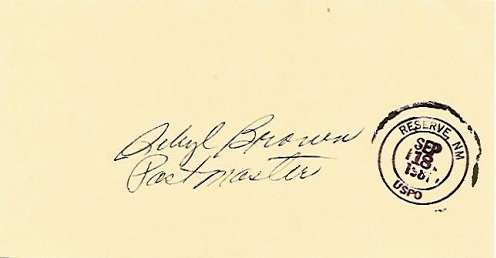 Sibyl Brown
Postmaster
RESERVE, NM
SEP
18
1987
USPO